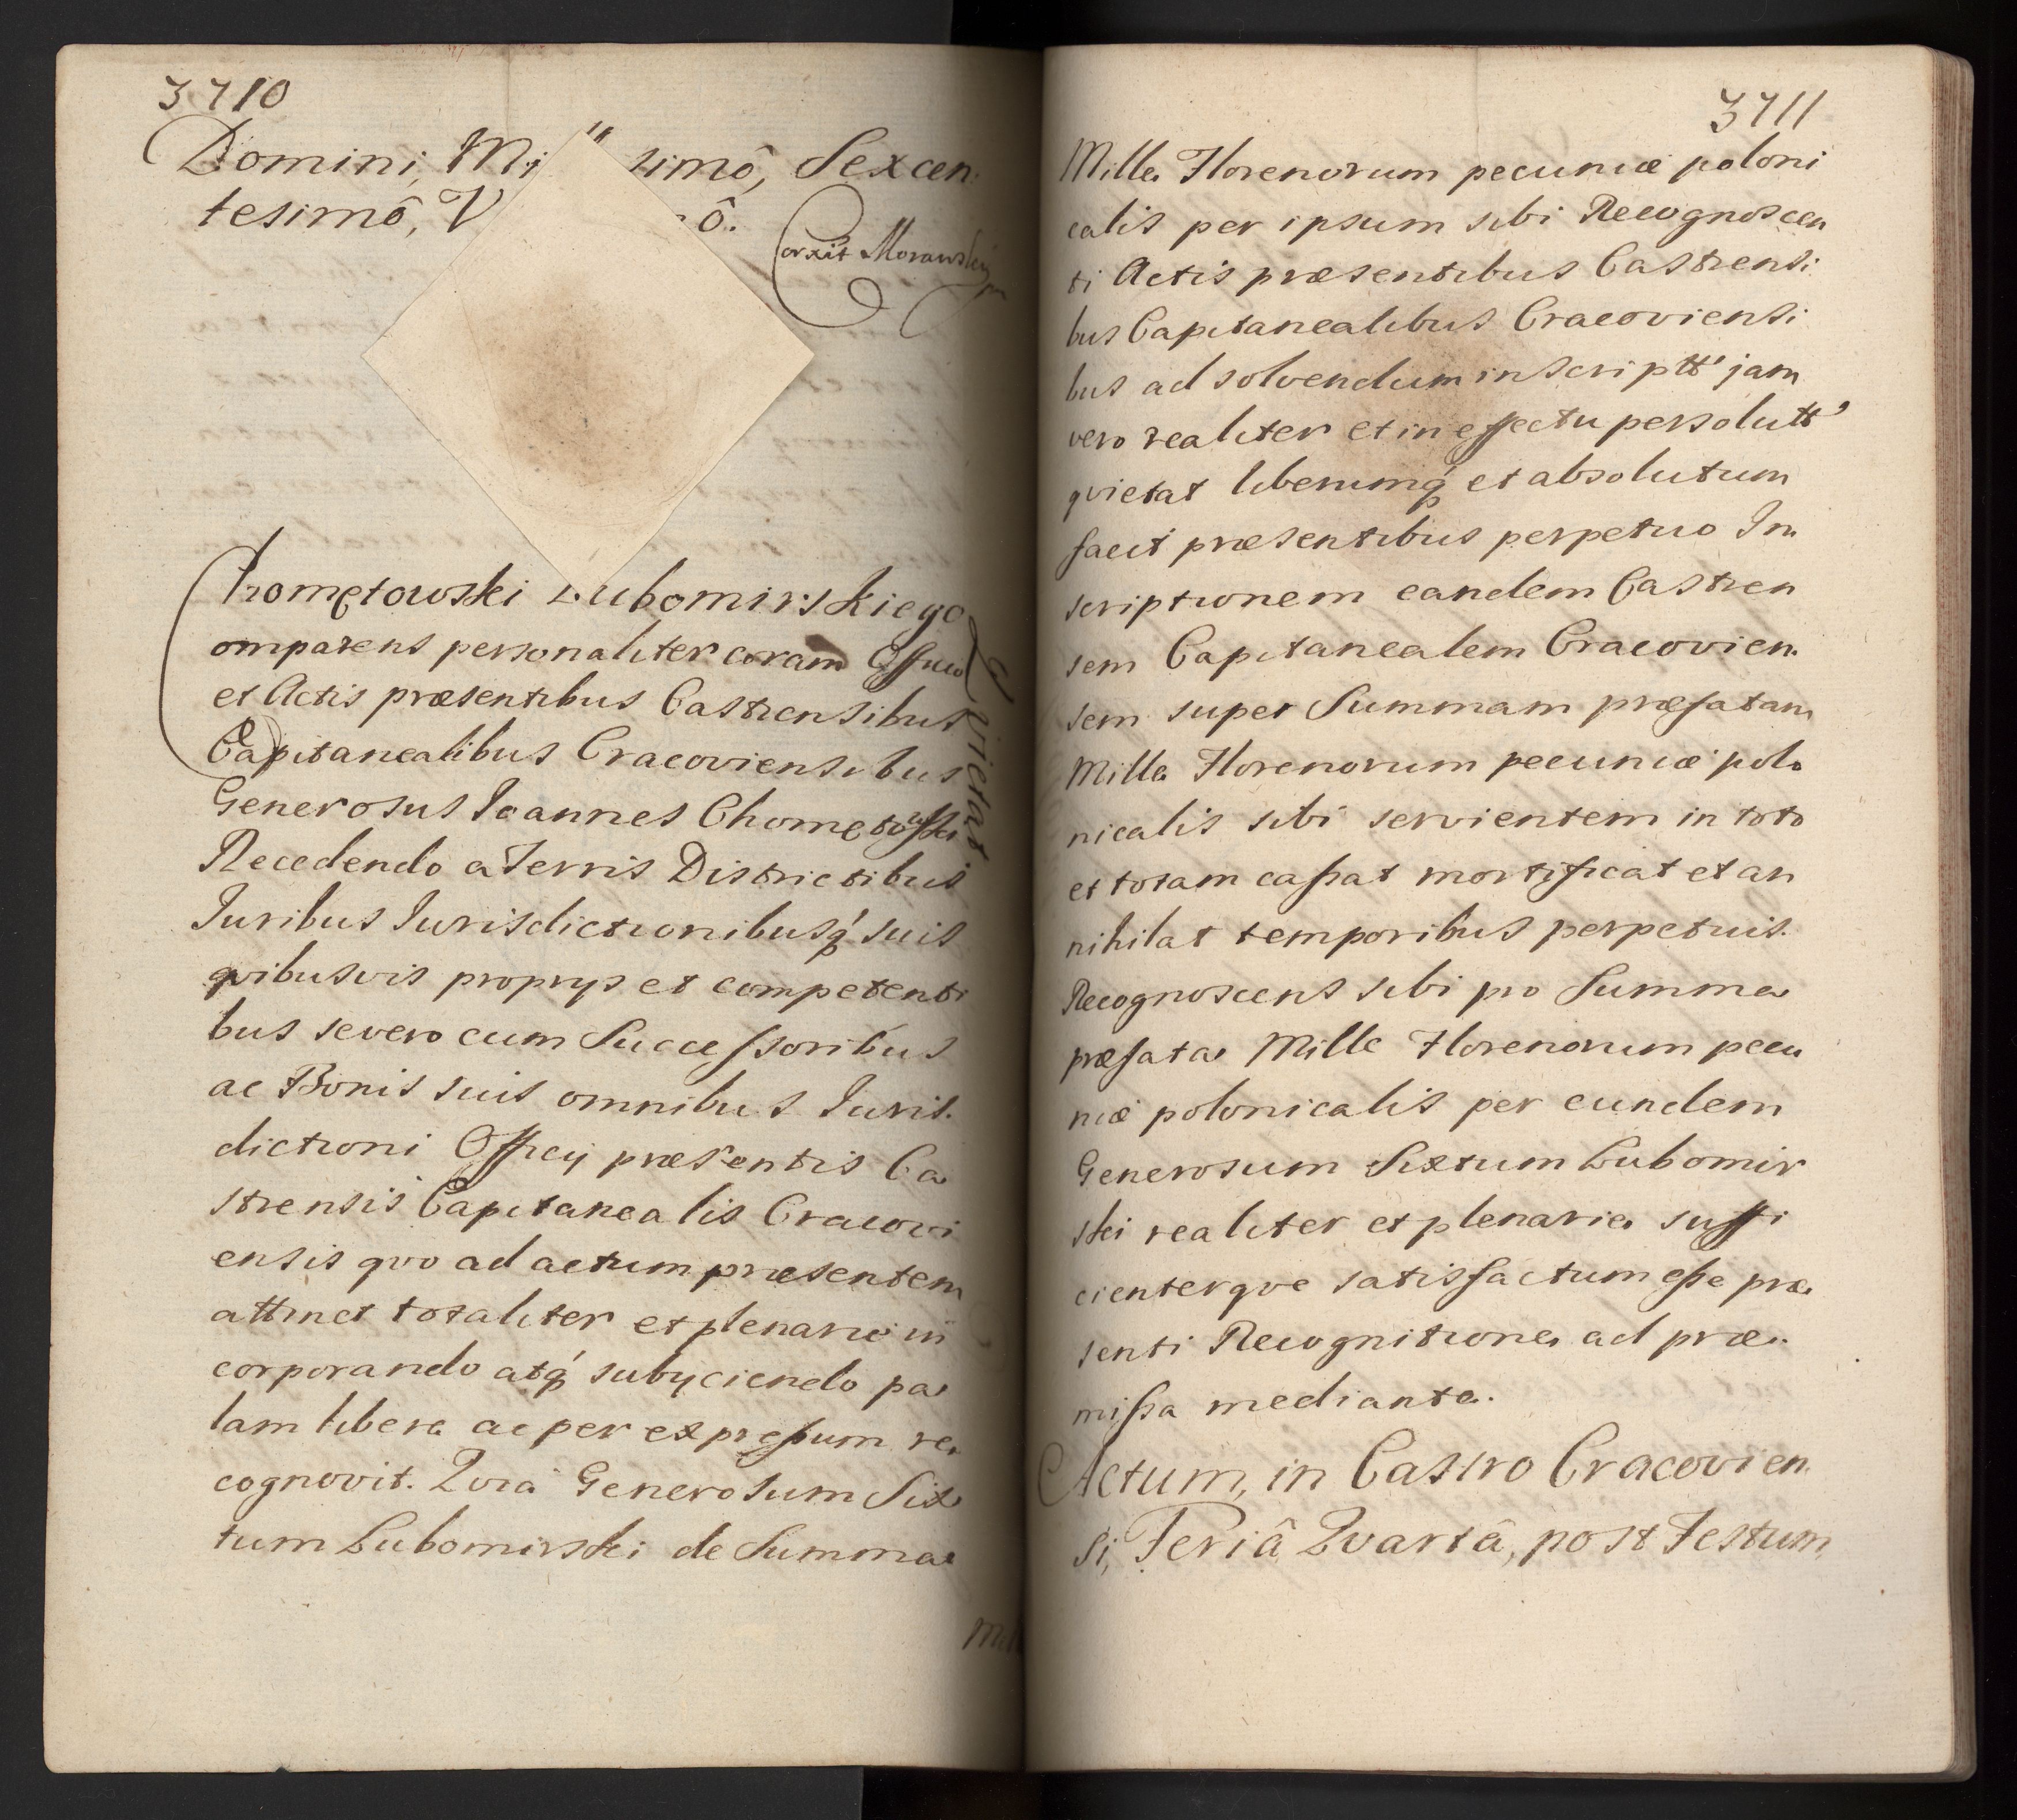 3710
Domini, Mi simô, Sexcen
tesimô, V ô.
Corxit Morawsky
Chometowski Lubomirskiego
Qvietat
omparens personaliter coram Officio
et Actis præsentibus Castrensibus
Capitanealibus Cracoviensibus
Generosus Ioannes Chometowski
Recedendo a Terris Districtibus
Iuribus Iurisdictionibusq́ suis
qvibusvis proprys et competenti
bus se vero cum Successoribus
ac Bonis suis omnibus Iuris
dictioni Officy præsentis Ca
strensis Capitanealis Cracovi
ensis qvo ad actum præsentem
attinet totaliter et plenarie in
corporando atq́ subyciendo pa
lam libere ac per expressum re
cognovit. Qvia Generosum Six
tum Lubomirski de Summa
Mill
3711
Mille Florenorum pecuniæ poloni
calis per ipsum sibi Recognoscen
ti Actis præsentibus Castrensi
bus Capitanealibus Cracoviensi
bus ad solvendum inscriptt' jam
vero realiter et in effectu persolutt'
qvietat liberumq́ et absolutum
facit præsentibus perpetuo In
scriptionem eandem Castren
sem Capitanealem Cracovien
sem super Summam præfatam
Mille Florenorum pecuniæ polo
nicalis sibi servientem in toto
et totam cassat mortificat et an
nihilat temporibus perpetuis.
Recognoscens sibi pro Summa
præfata Mille Florenorum pecu
niæ polonicalis per eundem
Generosum Sixtum Lubomir
ski realiter et plenarie suffi
cienterqve satisfactum esse præ
senti Recognitione ad præ
missa mediante.
Actum, in Castro Cracovien
si, Feriâ Qvartâ, post Festum